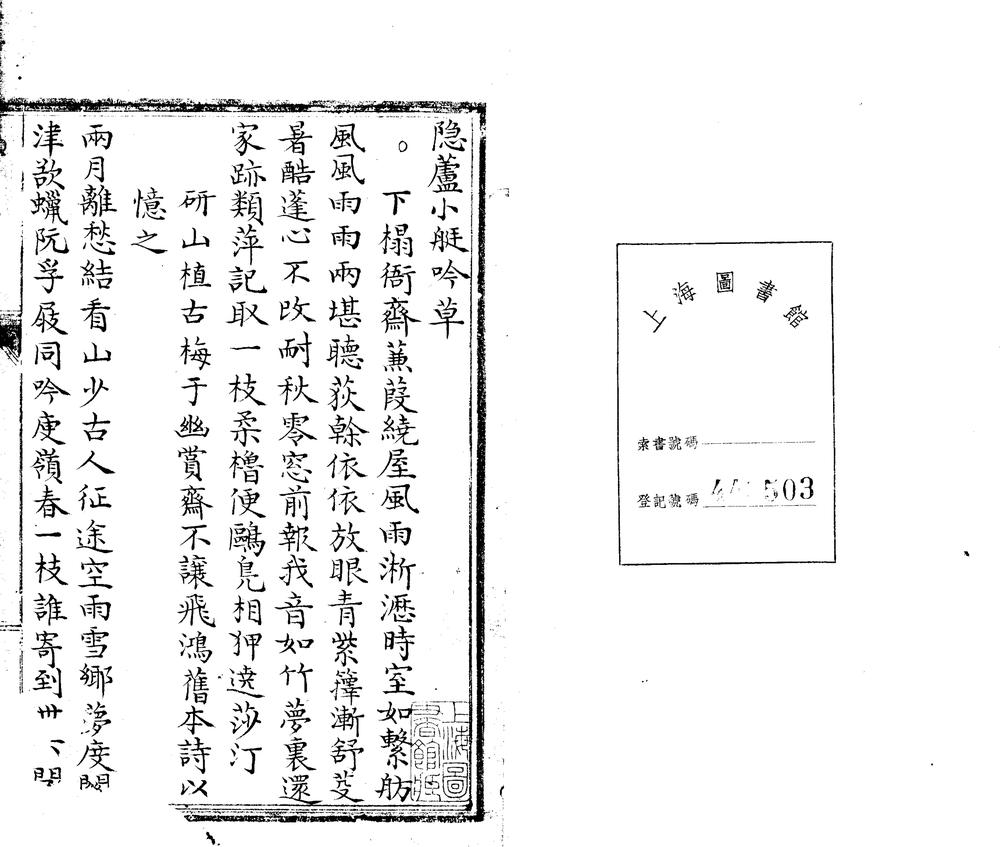 上海圖書館
索書號碼
登記號碼 503
隐蘆小艇吟草
。下榻衙齋蒹葭繞屋風雨淅瀝時室如繫舫
風風雨雨兩堪聽荻榦依依放眼青紫籜漸舒芰
暑酷蓬心不改耐秋零窓前報我音如竹夢裏還
家跡類萍記取一枝柔櫓便鷗鳧相狎遶莎汀
研山植古梅于幽賞齋不讓飛鴻舊本詩以
憶之
兩月離愁結看山少古人征途空雨雪鄉夢度閑
津欲蠟阮孚屐同吟庾嶺春一枝誰寄到
上海圖書館藏